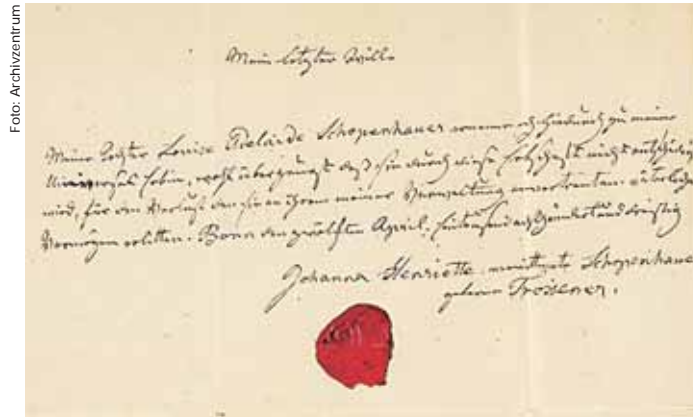 Foto: Archivzentrum
Mein letzter Wille
Meine Tochter Louise Adelaide Schopenhauer ernenne ich hiedurch zu meiner
Universal Erbin, wohl überzeugt daß sie durch diese Erbschaft nicht entschädigt
wird, für den Verlust den sie an ihrem meiner Verwaltung anvertrauten väterlichen
Vermögen erlitten. Bonn den zwölften April. Eintausend achthundert und dreißig
Johanna Henriette verwittwete Schopenhauer
geborne Trosiener.